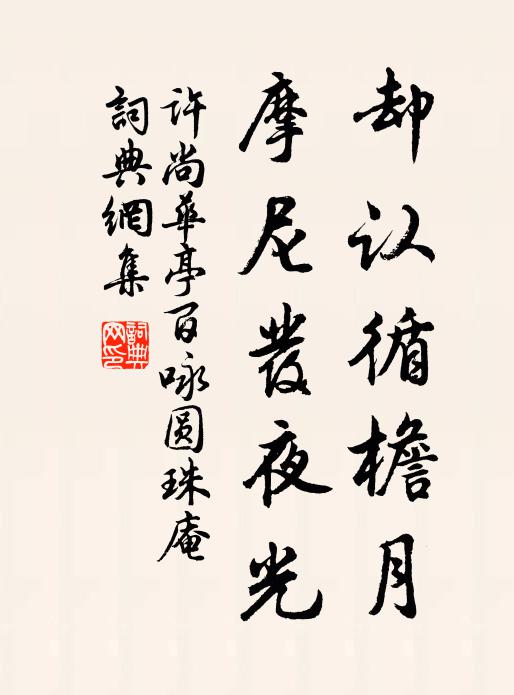 却认循檐月
摩尼發夜光
许尚華亭百咏圆珠庵
詞典網集
詞典网印